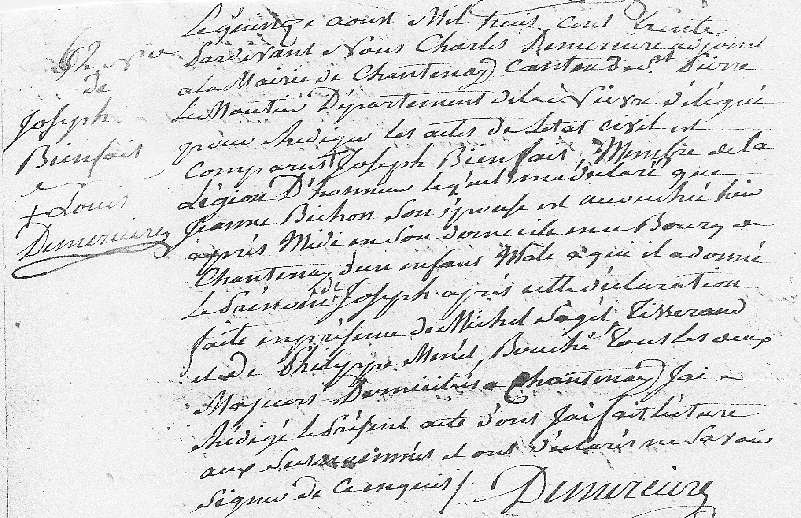 Le quinze aoust Mil treus cent trente
Pardevant Nous Charles Demerieure adjoint
a la Mairie de Chantenay Canton de St Pierre
Le Moutier Département de la Nievre délégué
pour Rediger les actes de letat civil est
Comparut Joseph Bienfait, Membre de la
Légion D'honneur lequel ma déclaré que
Jeanne Bichon Son épouse est accouché hier
après Midi en Son domicile en ce Bourg de
Chantenay d'un enfans Male a qui il a donné
le Prénom de Joseph après cette déclaration
faite en présence de Michel Pagés, Tisserand
et de Philippe Minel, Bouché, Tous les deux
Majeurs Domiciliés a Chantenay, Jai
Redigé le Présent acte d'ont Jai fait lecture
aux Susnommés et ont déclarés ne Savoir
Signer de Cenquis /
Demerieure
62
de
Joseph
Bienfait
+ Louis
Demerieure